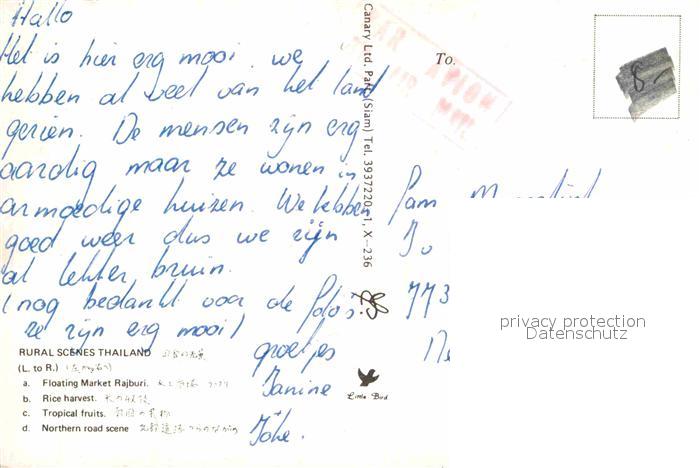 Hallo
Het is hier erg mooi. we
hebben al veel van het land
gezien. De mensen zijn erg
aardig maar ze wonen in
armoedige huizen. We hebben
goed weer dus we zijn
al lekker bruin.
(nog bedankt voor de foto's
ze zijn erg mooi)
groetjes
Janine
RURAL SCENES THAILAND
(L. to R.)
a. Floating Market Rajburi.
b. Rice harvest.
c. Tropical fruits.
d. Northern road scene
Canary Ltd. Part. (Siam) Tel. 3937220-1, X-236
Little Bird
PAR AVION
AIR MAIL
To.
8-
Pam
773
privacy protection
Datenschutz